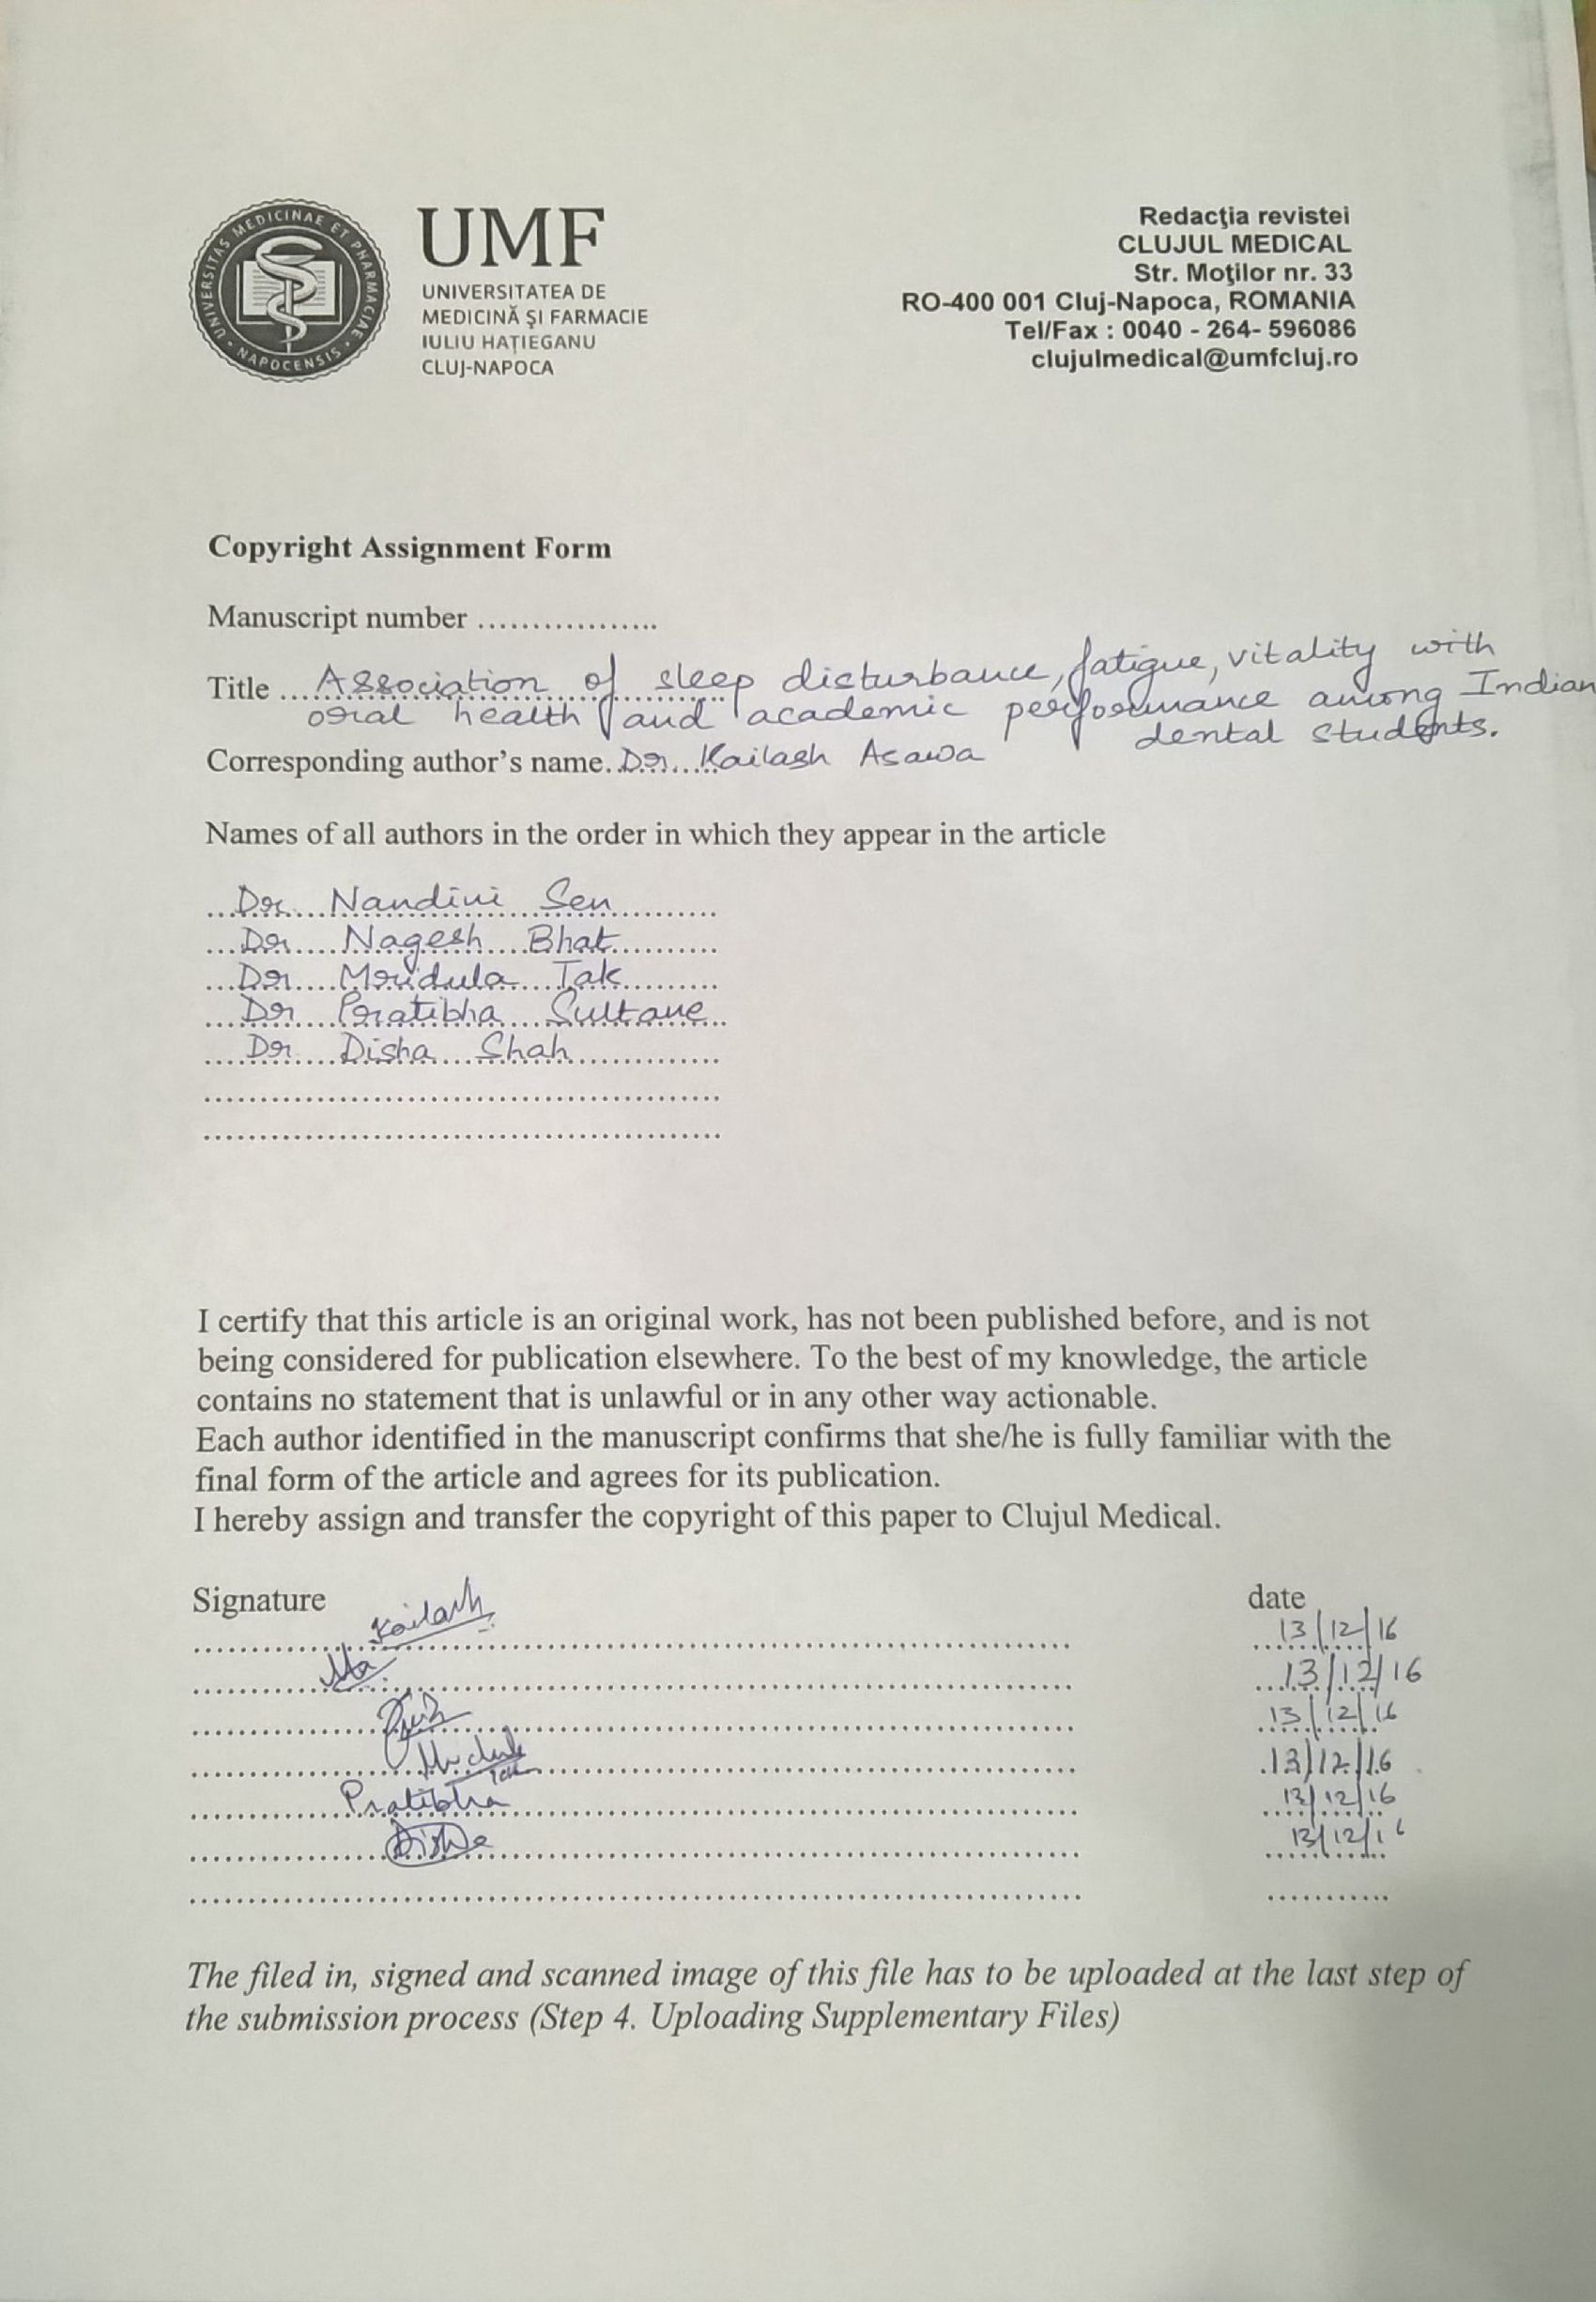 UNIVERSITAS MEDICINAE ET PHARMACIAE
NAPOCENSIS
UMF
UNIVERSITATEA DE
MEDICINĂ ŞI FARMACIE
IULIU HAŢIEGANU
CLUJ-NAPOCA
Redacţia revistei
CLUJUL MEDICAL
Str. Moţilor nr. 33
RO-400 001 Cluj-Napoca, ROMANIA
Tel/Fax : 0040 - 264- 596086
clujulmedical@umfcluj.ro
Copyright Assignment Form
Manuscript number ..................
Title ... Association of sleep disturbance, fatigue, vitality with
oral health and academic performance among Indian
dental students.
Corresponding author's name. Dr. Kailash Asawa
Names of all authors in the order in which they appear in the article
Dr. Nandini Sen
Dr. Nagesh Bhat
Dr. Mridula Tak
Dr Pratibha Sultane
Dr. Disha Shah
I certify that this article is an original work, has not been published before, and is not
being considered for publication elsewhere. To the best of my knowledge, the article
contains no statement that is unlawful or in any other way actionable.
Each author identified in the manuscript confirms that she/he is fully familiar with the
final form of the article and agrees for its publication.
I hereby assign and transfer the copyright of this paper to Clujul Medical.
Signature date
Kailash 13/12/16
13/12/16
13/12/16
Mridula Tak 13/12/16
Pratibha 13/12/16
Disha 13/12/16
The filed in, signed and scanned image of this file has to be uploaded at the last step of
the submission process (Step 4. Uploading Supplementary Files)